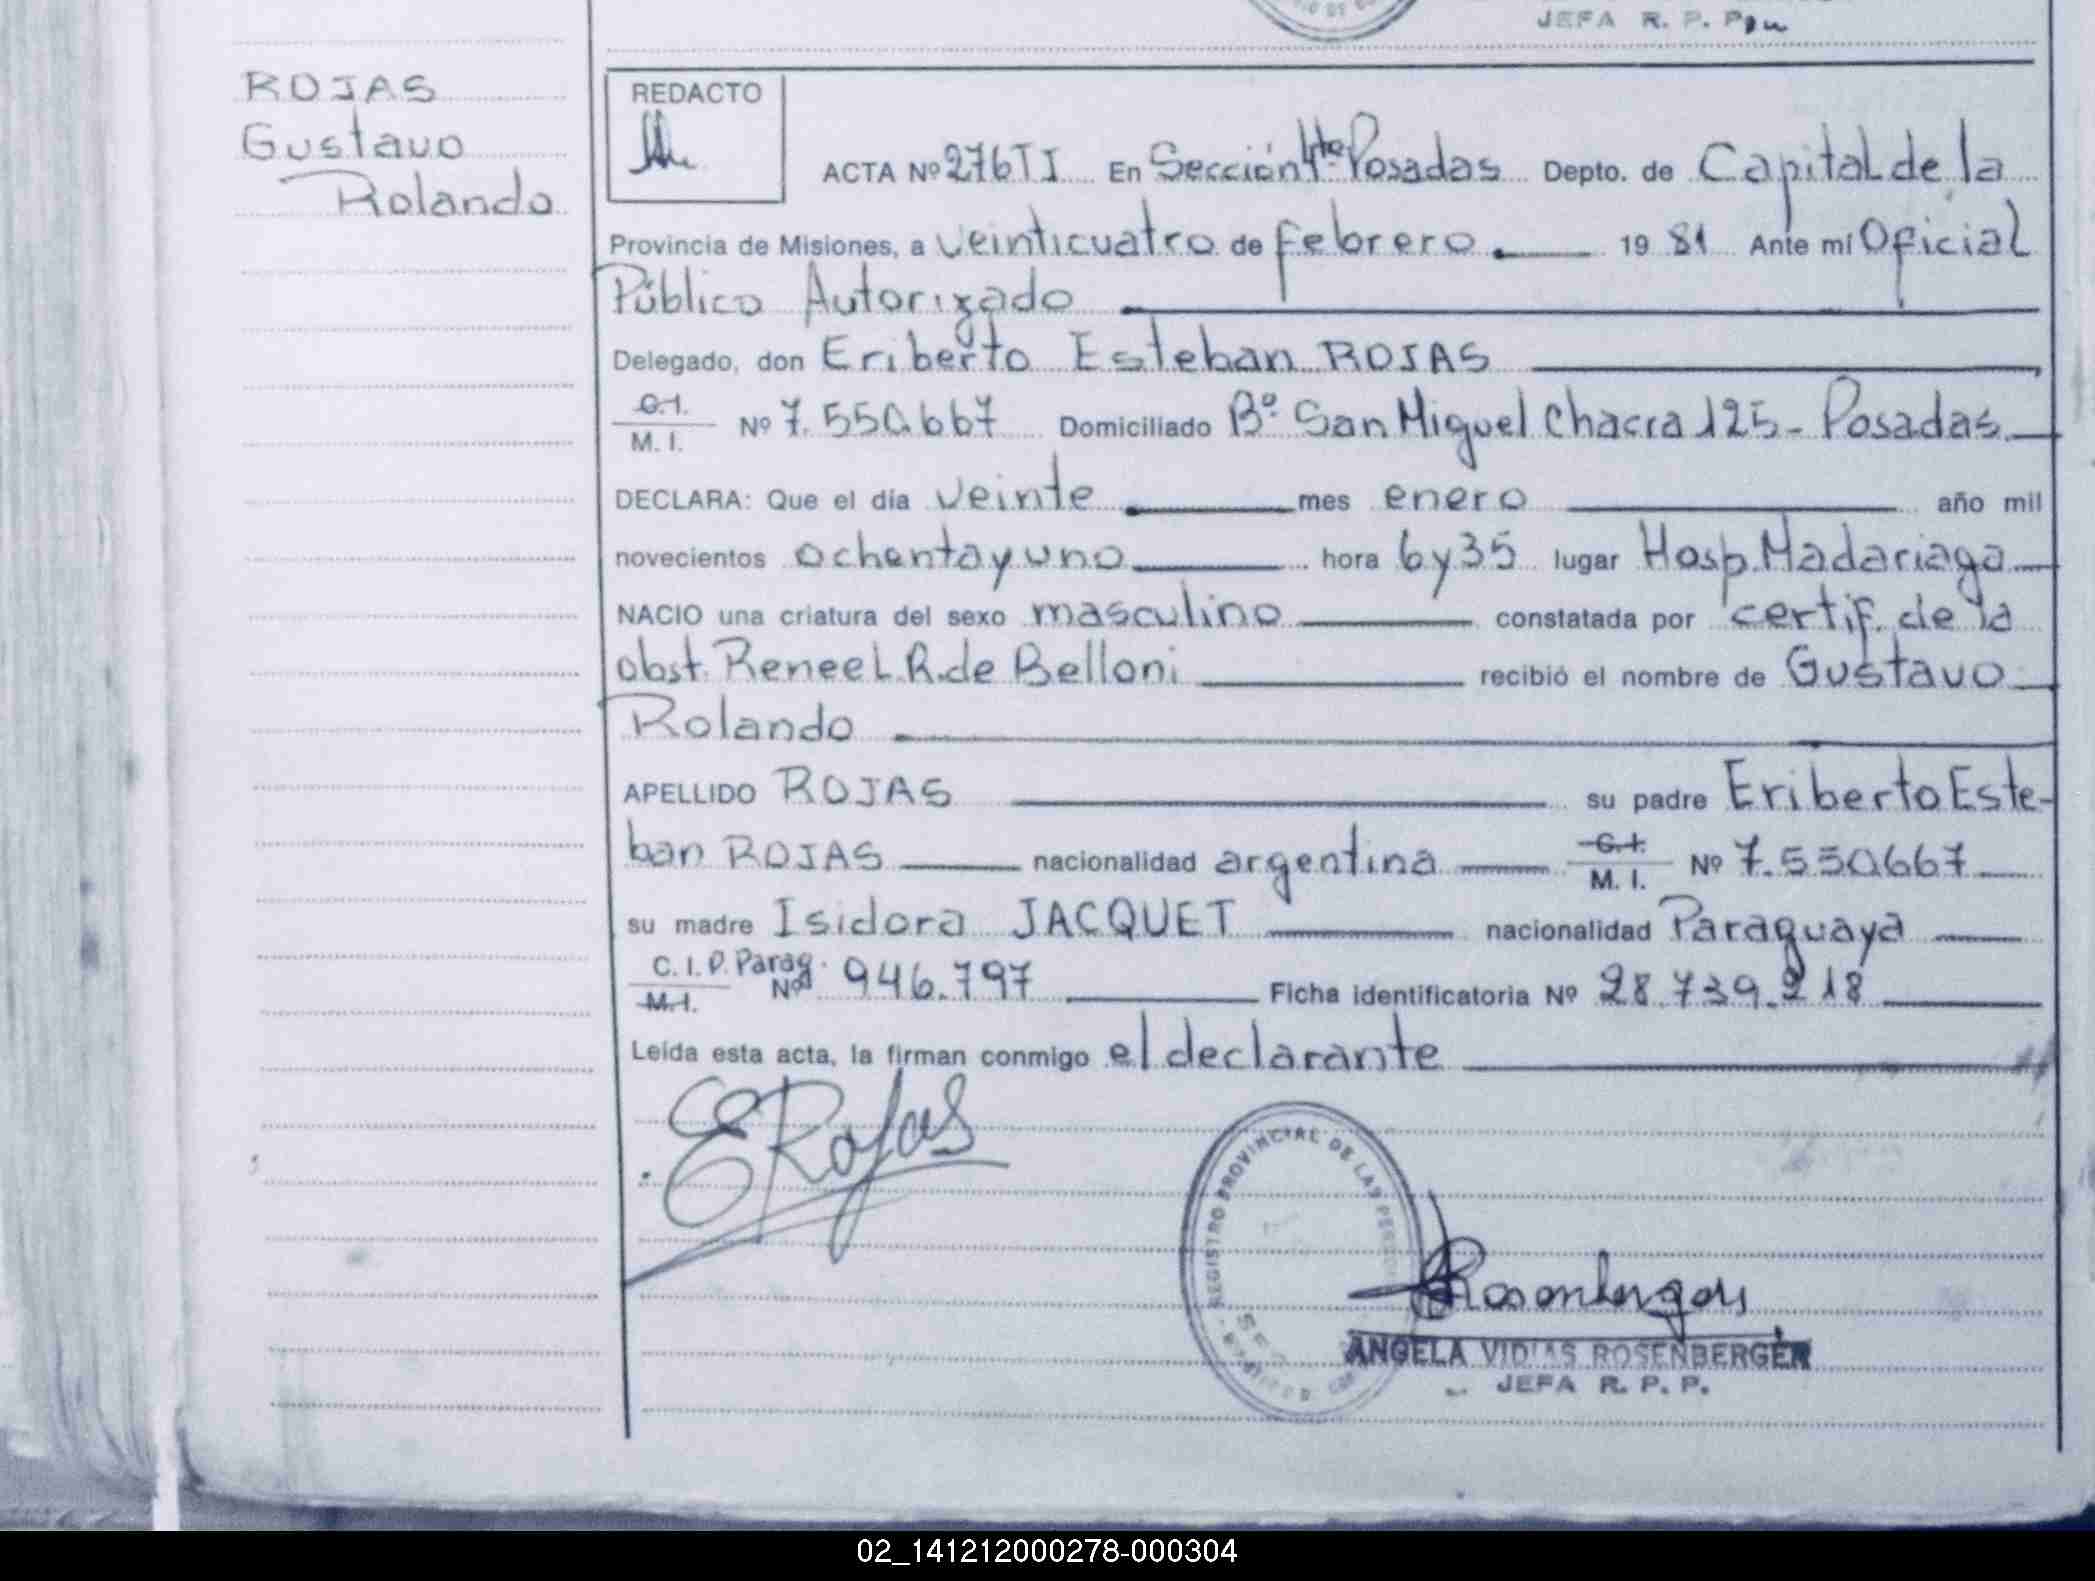 JEFA R. P. P.
ROJAS
Gustavo
Rolando
REDACTO
ACTA Nº 276 TI En Sección 4ta Posadas Depto. de Capital de la
Provincia de Misiones, a veinticuatro de febrero. 19 81 Ante mí Oficial
Público Autorizado
Delegado, don Eriberto Esteban ROJAS
C.I.
M. I. Nº 7.550.667 Domiciliado Bº San Miguel Chacra 125 - Posadas
DECLARA: Que el día veinte mes enero año mil
novecientos ochenta y uno hora 6 y 35 lugar Hosp. Madariaga
NACIO una criatura del sexo masculino constatada por certif. de la
obst. Renee L. R. de Belloni recibió el nombre de Gustavo
Rolando
APELLIDO ROJAS su padre Eriberto Este-
ban ROJAS nacionalidad argentina C.I. M. I. Nº 7.550.667
su madre Isidora JACQUET nacionalidad Paraguaya
C. I. P. Parag. M.I. Nº 946.797 Ficha identificatoria Nº 28.739.218
Leída esta acta, la firman conmigo el declarante
E Rojas
REGISTRO PROVINCIAL DE LAS
Rosenberger
ANGELA VIDIAS ROSENBERGER
JEFA R. P. P.
02_141212000278-000304